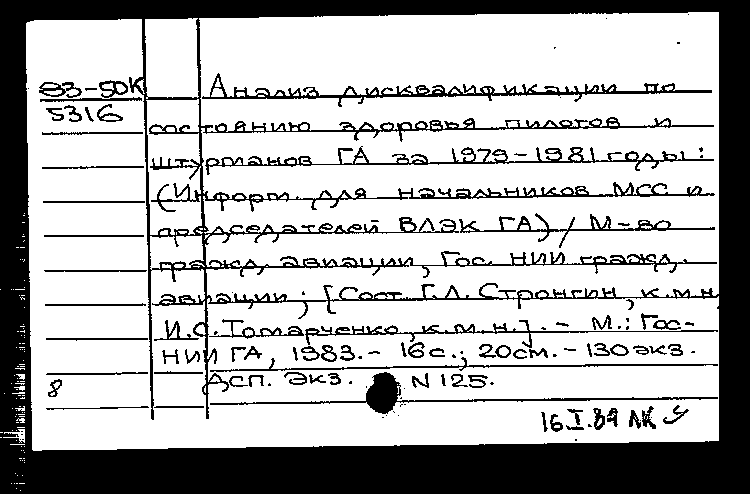 83-50К
5316
Анализ дисквалификации по
состоянию здоровья пилотов и
штурманов ГА за 1979-1981 годы:
(Информ. для начальников МСС и
председателей ВЛЭК ГА) / М-во
гражд. авиации, Гос. НИИ гражд.
авиации; [Сост. Г.Л. Стронгин, к.м.н.,
И.С. Томарченко, к.м.н.]. - М.: Гос-
НИИ ГА, 1983. - 16 с.; 20 см. - 130 экз.
8 Дсп. Экз. N 125.
16.I.84 ЛК